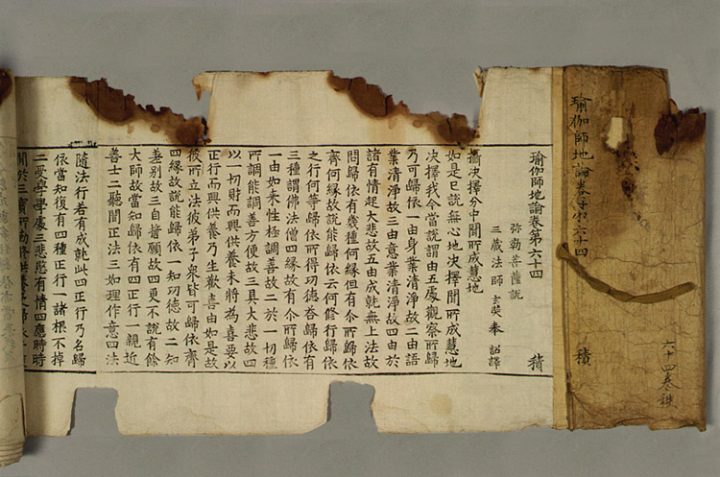 瑜伽師地論卷第六十四
積
六十四卷
瑜伽師地論卷第六十四 積
弥勒菩薩說
三藏法師玄奘奉 詔譯
攝決擇分中聞所成慧地
如是已說無心地決擇聞所成慧地
決擇我今當說謂由五處觀察所歸
乃可歸依一由身業清淨故二由語
業清淨故三由意業清淨故四由於
諸有情起大悲故五由成就無上法故
問歸依有幾種何緣但有尒所歸依
齊何緣故說能歸依云何修行歸依
之行何等歸依所得功德荅歸依有
三種謂佛法僧四緣故有尒所歸依
一由如来性極調善故二於一切種
所調能調善方便故三具大悲故四
以一切財而興供養未將為喜要以
正行而興供養乃生歡喜由如是故
彼所立法彼弟子衆皆可歸依齊
四緣故說能歸依一知功德故二知
差別故三自誓願故四更不說有餘
大師故當知歸依有四正行一親近
善士二聽聞正法三如理作意四法
隨法行若有成就此四正行乃名歸
依當知復有四種正行一諸根不掉
二受學學處三悲愍有情四應時時
間於三寶所勤修供養